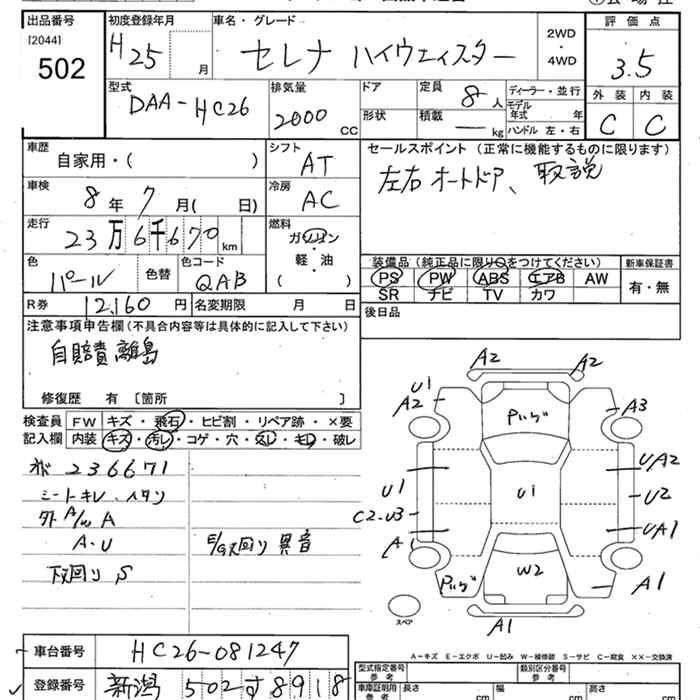 出品番号
[2044]
502
初度登録年月
H25 月
車名・グレード
セレナ ハイウェイスター
2WD
・
4WD
評価点
3.5
外装 内装
C C
型式
DAA-HC26
排気量
2000 CC
ドア
形状
定員
8人
積載
— kg
ディーラー・並行
モデル年式 年
ハンドル 左・右
車歴
自家用・( )
シフト
AT
セールスポイント (正常に機能するものに限ります)
左右オートドア、取説
車検
8年 7月( 日)
冷房
AC
走行
23万6千670 km
燃料
ガソリン
軽・油
( )
色
パール
色替
色コード
QAB
装備品 (純正品に限り○をつけてください)
PS PW ABS エアB AW
SR ナビ TV カワ
新車保証書
有・無
R券 12,160円 名変期限 月 日
後日品
注意事項申告欄(不具合内容等は具体的に記入して下さい)
自賠責離島
修復歴 有 〔箇所 〕
検査員
記入欄
FW キズ・飛石・ヒビ割・リペア跡・×要
内装 キズ・汚レ・コゲ・穴・スレ・キレ・破レ
236671
シートキレ、ヘタリ
外 A/W A
A・U
下回り S
E/G下回り 異音
A2 A2
U1
A2 A3
UA2
U1 U1 U2
C2・U3
UA1
A1
W2
A1
A1
スペア
A-キズ E-エクボ U-凹み W-補修跡 S-サビ C-腐食 ××-交換済
車台番号 HC26-081247
登録番号 新潟 502す8918
型式指定番号
参考
類別区分番号
参考
車庫証明用
参考
長さ cm
幅 cm
高さ cm